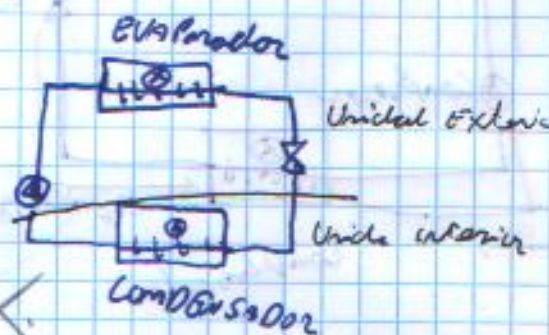 EVAPorador
Unidad Exterio
Unida interior
ComDENSADOR